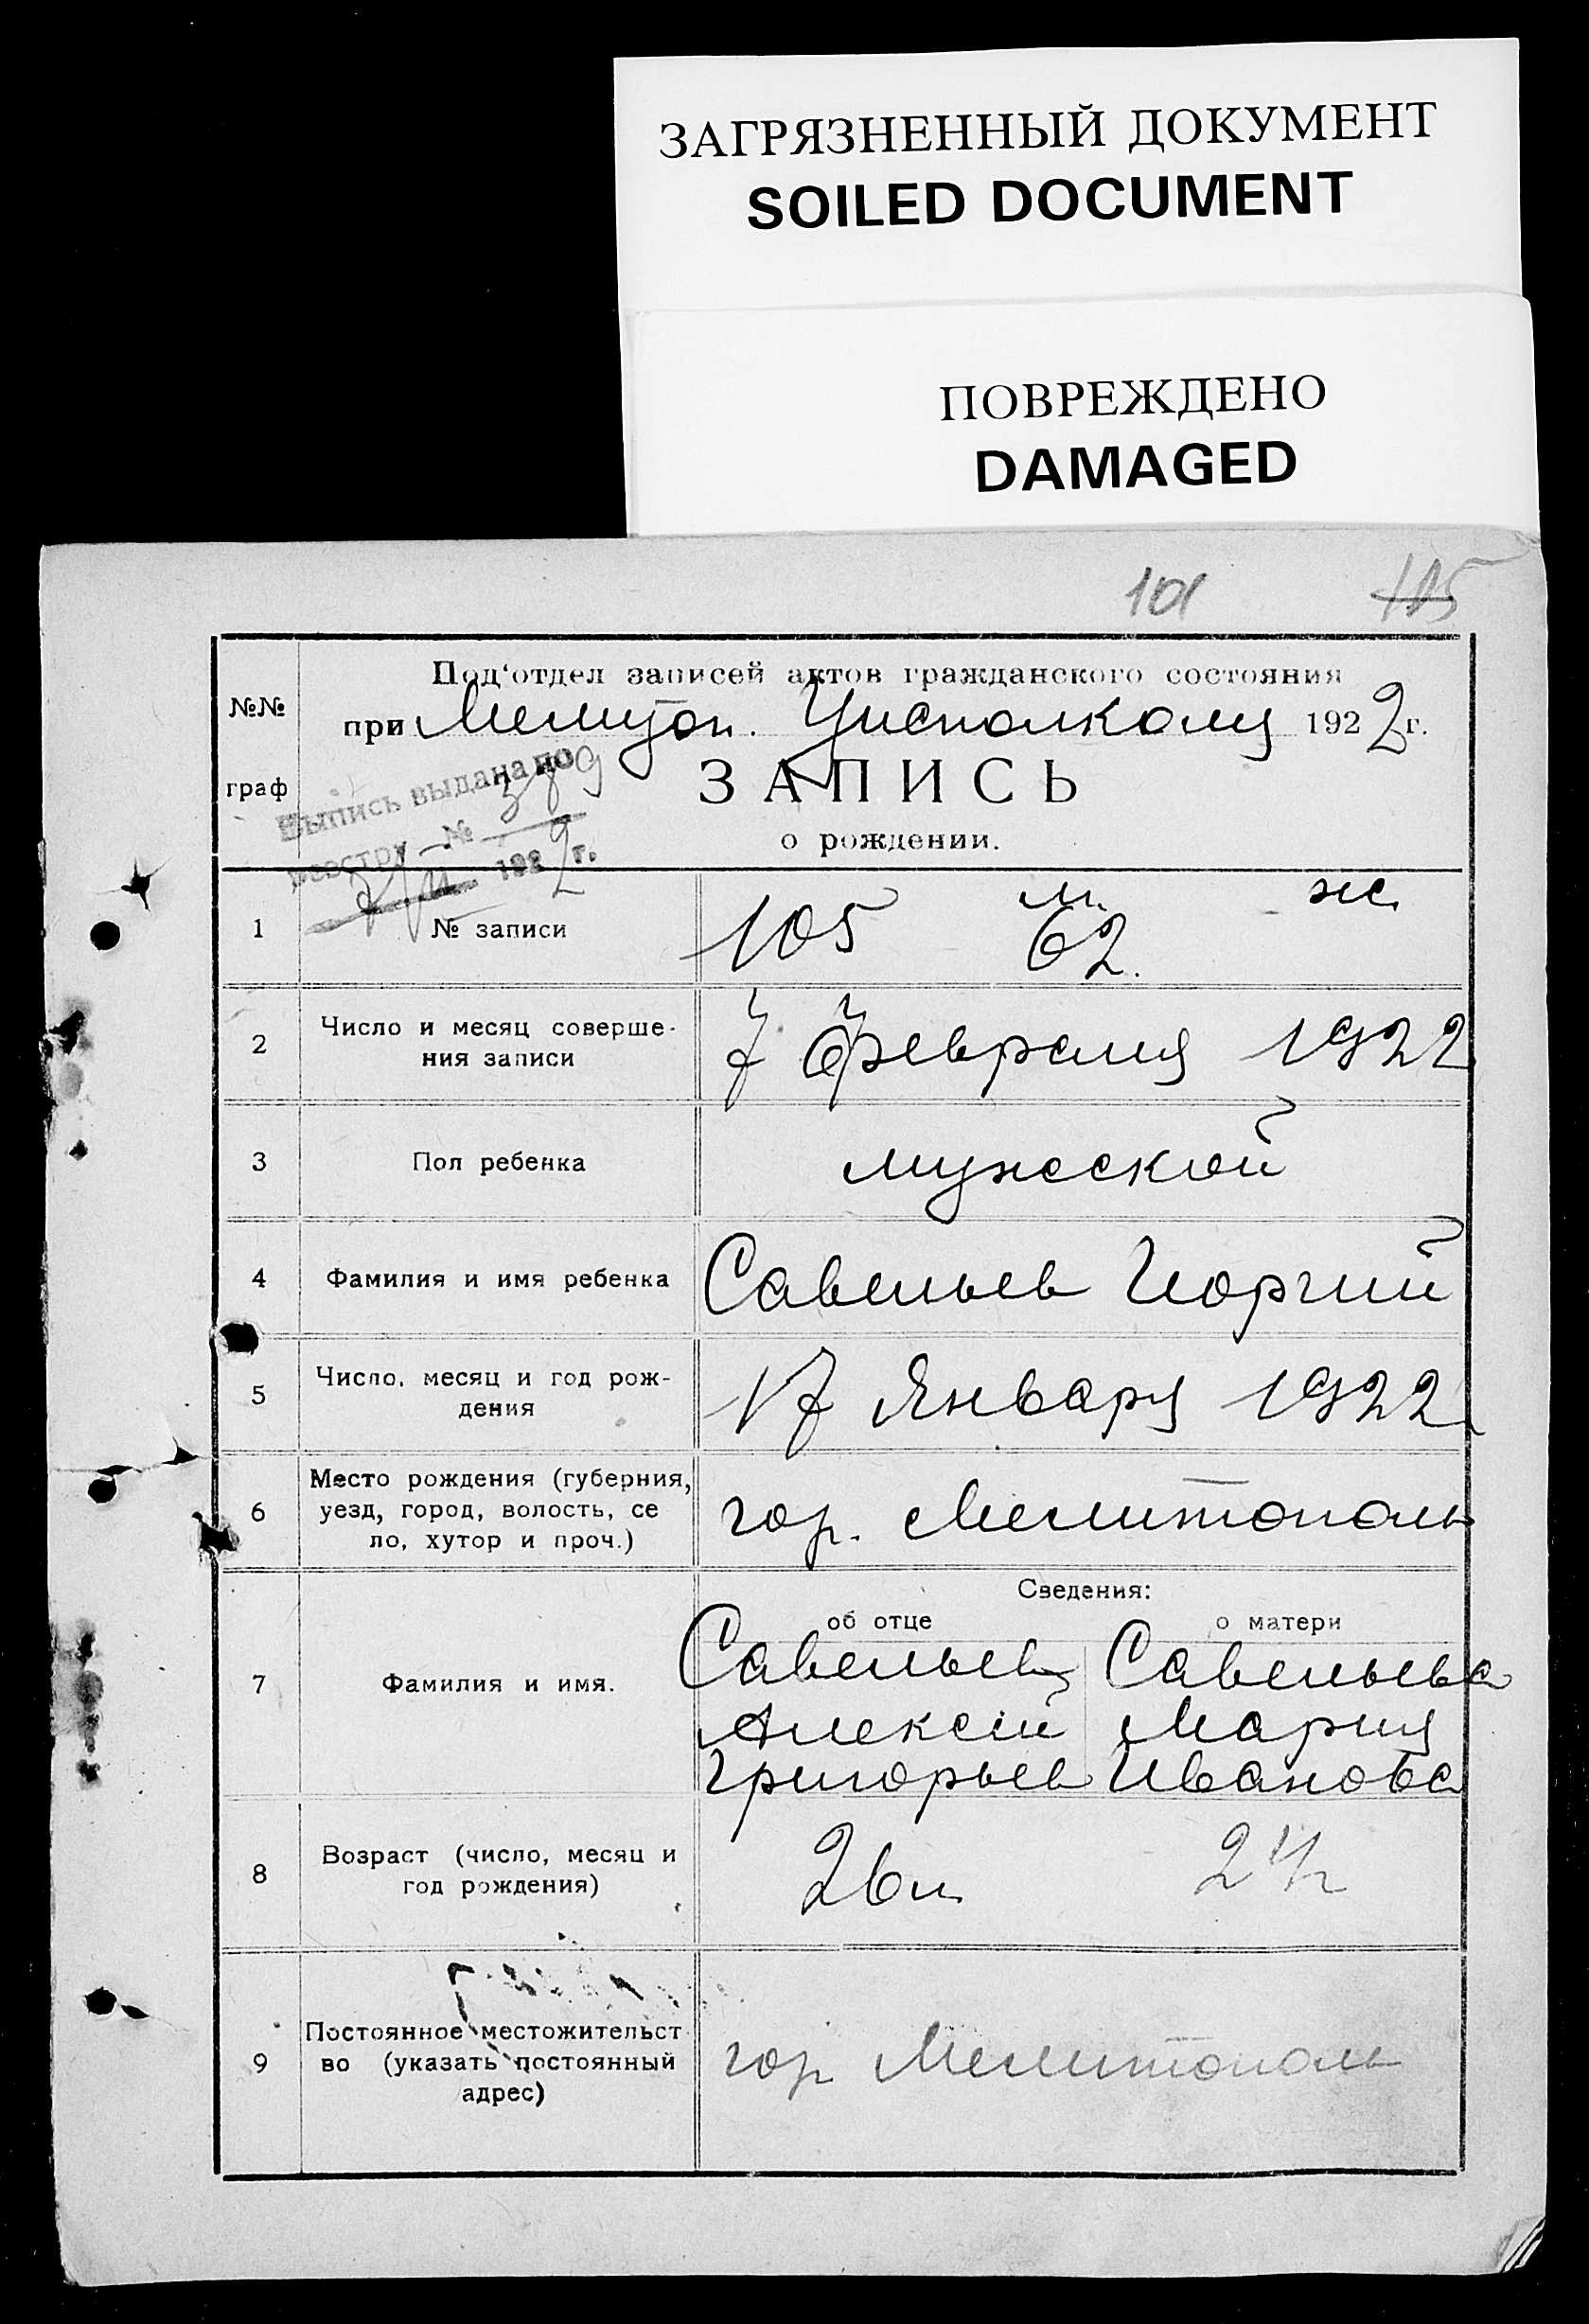 ЗАГРЯЗНЕННЫЙ ДОКУМЕНТ
SOILED DOCUMENT
ПОВРЕЖДЕНО
DAMAGED
101 115
№№ граф
Под'отдел записей актов гражданского состояния
при Мелитоп. Уисполкому 1922 г.
Выпись выдана по
реестру № 379
1922 г.
ЗАПИСЬ
о рождении.
1 № записи 105 м. 62. ж.
2 Число и месяц соверше-
ния записи 7 Февраля 1922
3 Пол ребенка мужской
4 Фамилия и имя ребенка Савельев Иоргий
5 Число, месяц и год рож-
дения 17 Января 1922
6 Место рождения (губерния,
уезд, город, волость, се
ло, хутор и проч.) гор. Мелитополь
Сведения:
об отце о матери
7 Фамилия и имя. Савельев Савельева
Алексей Мария
Григорьев Иванова
8 Возраст (число, месяц и
год рождения) 26 л
9 Постоянное местожительст
во (указать постоянный
адрес) гор Мелитополь